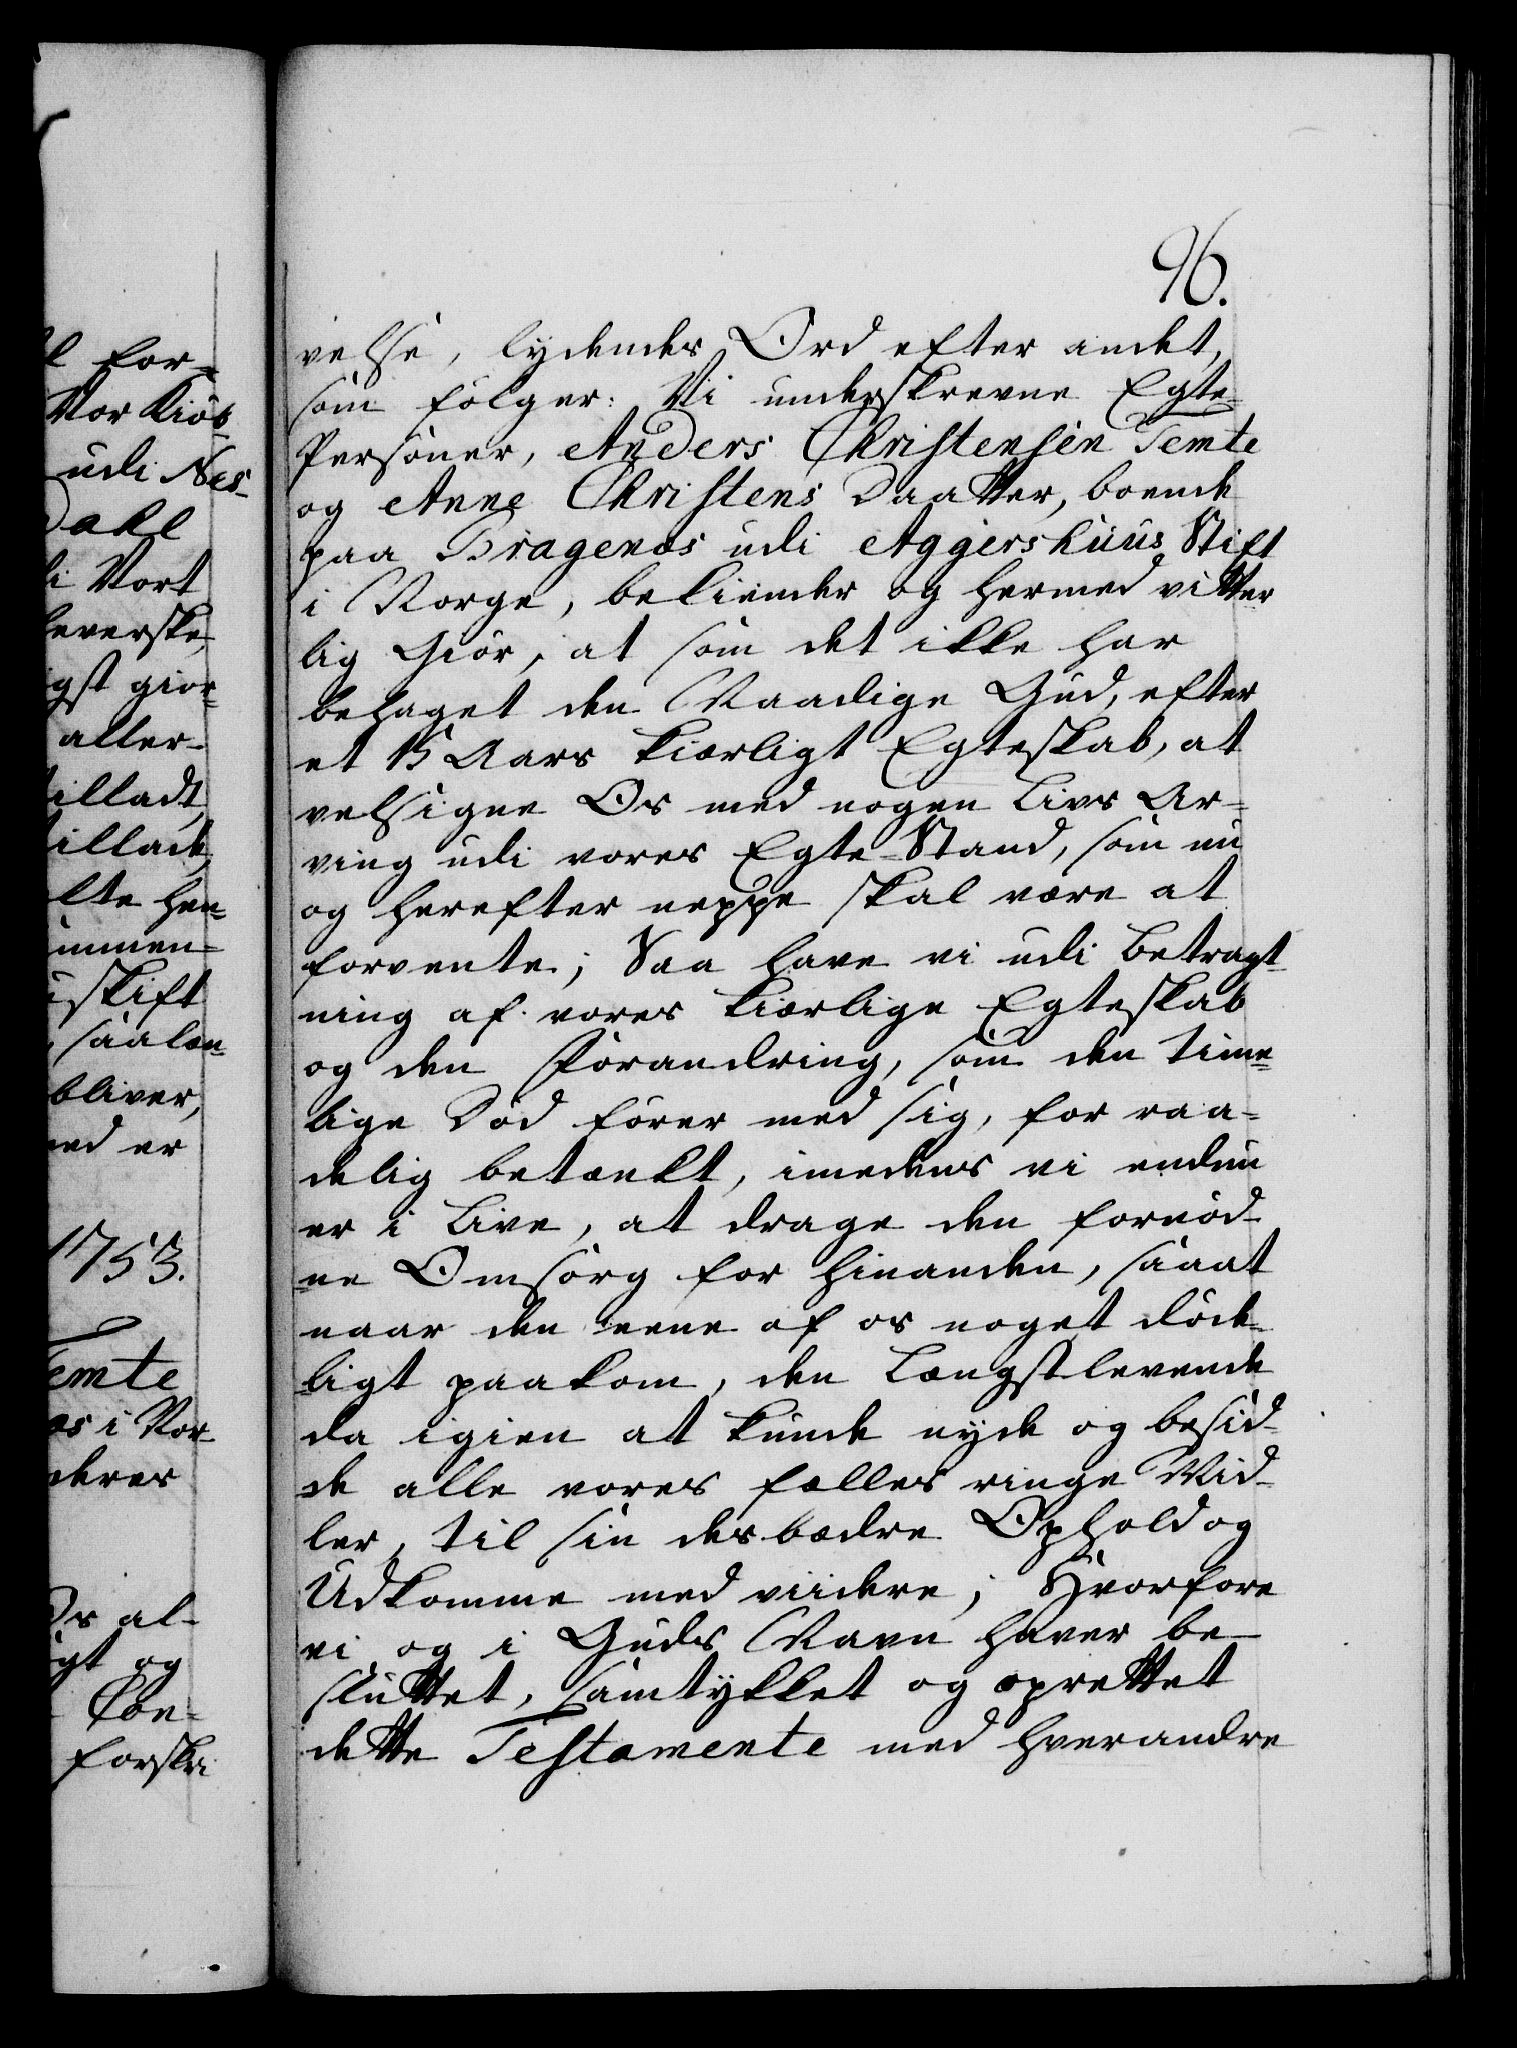 l for-
Vor Kiöb-
udi Nes-
Dahl
i Vort
leverske,
igst gior-
aller-
tilladt,
tillade,
elte hen-
immen-
uskift
, saalæn-
bliver,
med er
1753.
Temte
os i Nor-
deres
Os al-
igt og
Con-
forskri-
96.
velse, lydendes Ord efter andet,
som følger: Vi underskrevne Egte-
Personer, Anders Christensen Temte
og Anne Christens Daatter, boende
paa Bragenæs udi Aggershuus Stift
i Norge, bekiender og hermed vitter
lig Giör, at som det ikke har
behaget den Naadige Gud, efter
et 15 Aars kiærligt Egteskab, at
velsigne Os med nogen Livs Ar-
ving udi vores Egte-Stand, som nu
og herefter neppe skal være at
forvente; Saa have vi udi Betragt-
ning af vores kiærlige Egteskab
og den Forandring, som den time-
lige Död förer med sig, for raa-
delig betænkt, imedens vi endnu
er i Live, at drage den fornöd-
ne Omsorg for hinanden, saaat
naar den eene af os noget döde-
ligt paakom, den Længstlevende
da igien at kunde nyde og besid-
de alle vores fælles ringe Mid-
ler, til sin desbædre Ophold og
Udkomme med viidere; Hvorfore
vi og i Guds Navn haver be-
sluttet, samtykket og oprettet
dette Testamente med hverandre